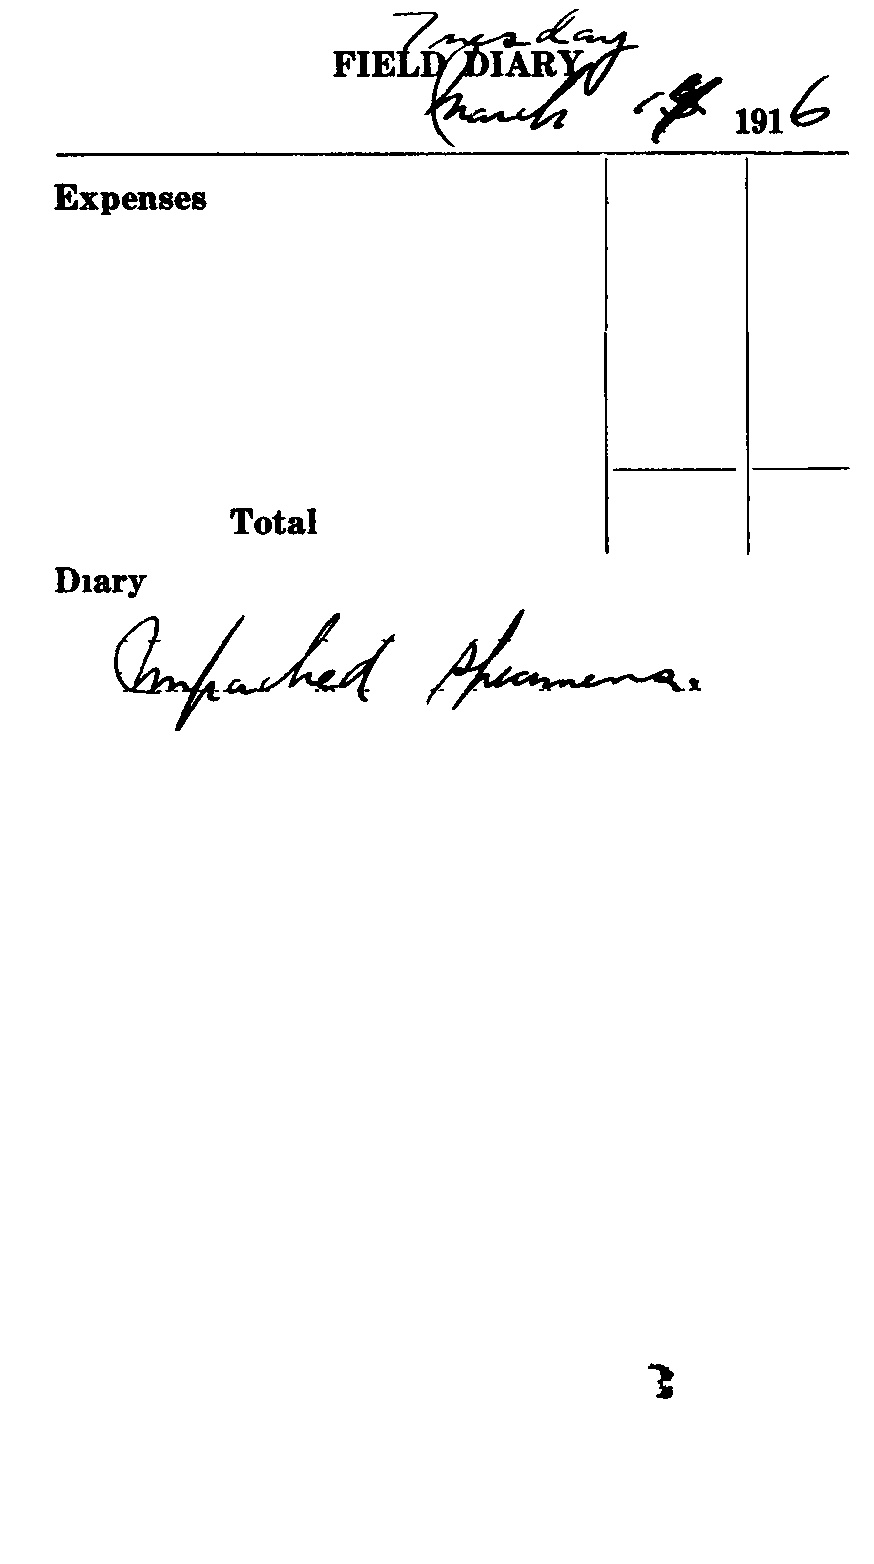 Tuesday
FIELD DIARY
March 1916
Expenses
Total
Diary
Unpacked specimens.